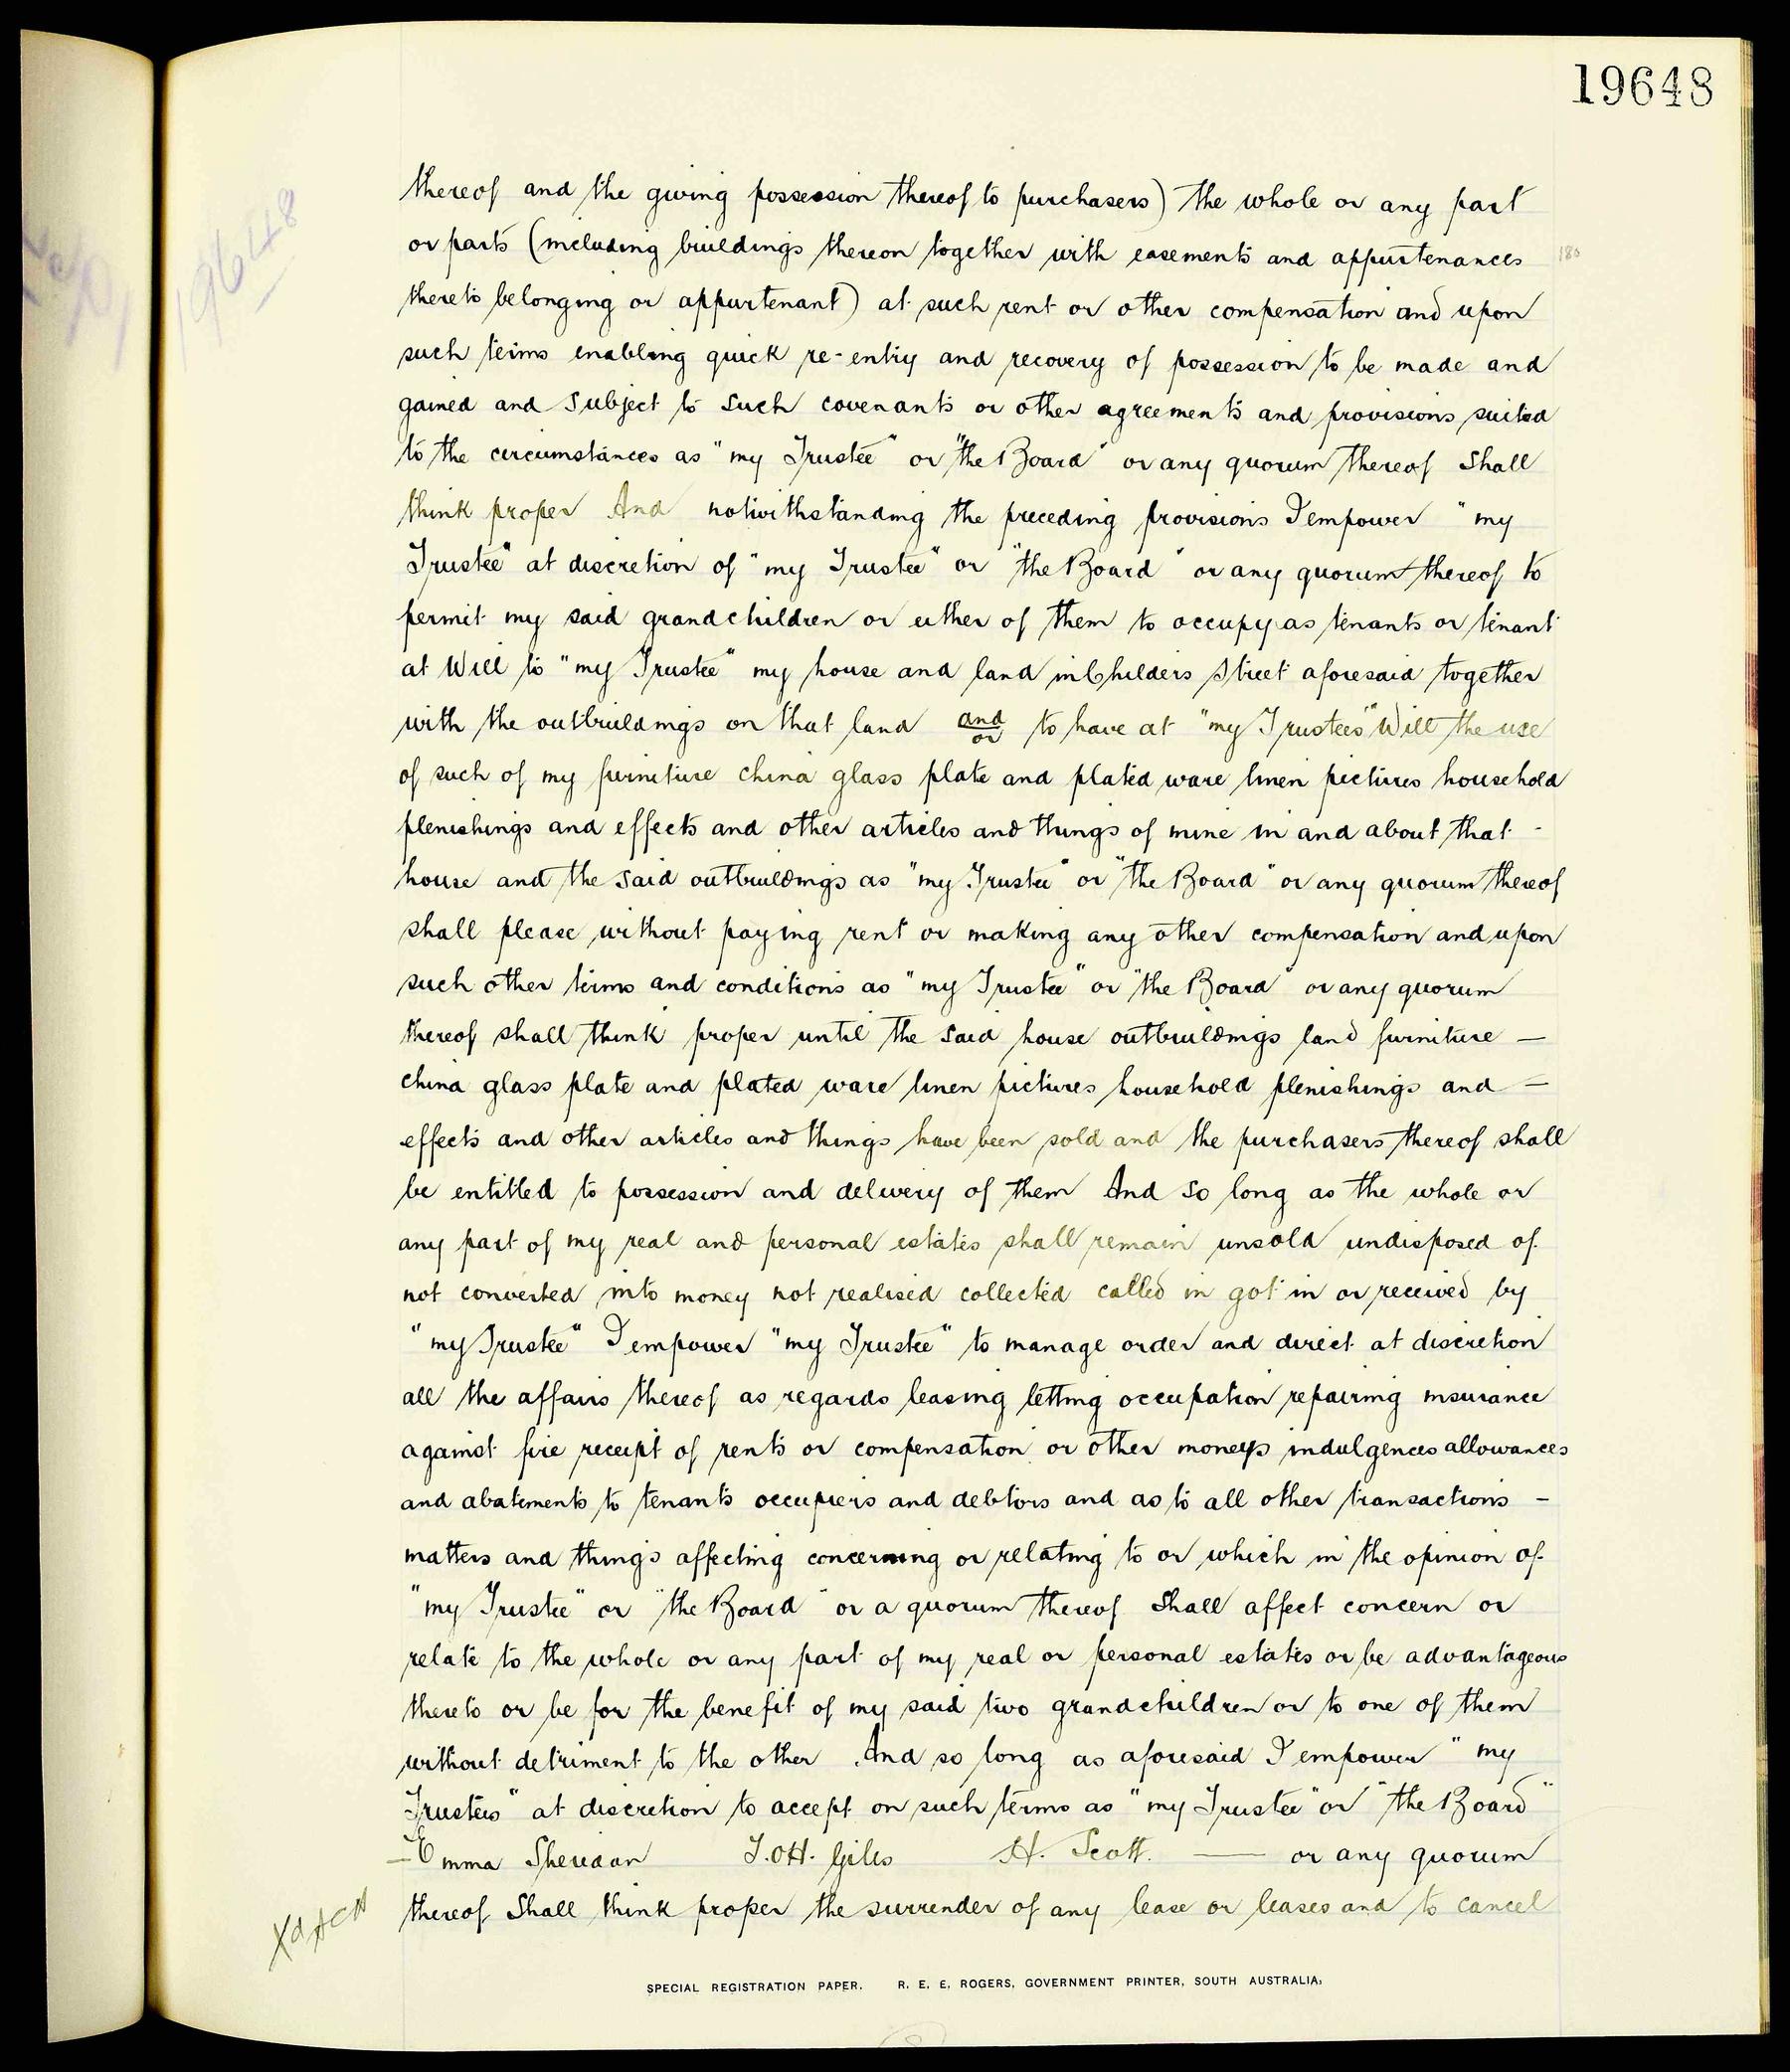 19648
19648
thereof and the giving possession thereof to purchasers) the whole or any part
or parts (including buildings thereon together with easements and appurtenances
180
thereto belonging or appurtenant) at such rent or other compensation and upon
such terms enabling quick re-entry and recovery of possession to be made and
gained and subject to such covenants or other agreements and provisions suited
to the circumstances as "my Trustee" or "the Board" or any quorum thereof shall
think proper And notwithstanding the preceding provisions I empower "my
Trustee" at discretion of "my Trustee" or "the Board" or any quorum thereof to
permit my said grandchildren or either of them to occupy as tenants or tenant
at Will to "my Trustee" my house and land in Childers Street aforesaid together
with the outbuildings on that land and/or to have at "my Trustees" Will the use
of such of my furniture china glass plate and plated ware linen pictures household
plenishings and effects and other articles and things of mine in and about that -
house and the said outbuildings as "my Trustee" or "the Board" or any quorum thereof
shall please without paying rent or making any other compensation and upon
such other terms and conditions as "my Trustee" or "the Board" or any quorum
thereof shall think proper until the said house outbuildings land furniture —
china glass plate and plated ware linen pictures household plenishings and —
effects and other articles and things have been sold and the purchasers thereof shall
be entitled to possession and delivery of them And so long as the whole or
any part of my real and personal estates shall remain unsold undisposed of
not converted into money not realised collected called in got in or received by
"my Trustee" I empower "my Trustee" to manage order and direct at discretion
all the affairs thereof as regards leasing letting occupation repairing insurance
against fire receipt of rents or compensation or other moneys indulgences allowances
and abatements to tenants occupiers and debtors and as to all other transactions -
matters and things affecting concerning or relating to or which in the opinion of
"my Trustee" or "the Board" or a quorum thereof shall affect concern or
relate to the whole or any part of my real or personal estates or be advantageous
thereto or be for the benefit of my said two grandchildren or to one of them
without detriment to the other And so long as aforesaid I empower "my
Trustees" at discretion to accept on such terms as "my Trustee" or "the Board"
— Emma Sheridan T.OH. Giles H. Scott. — or any quorum
thereof shall think proper the surrender of any lease or leases and to cancel
SPECIAL REGISTRATION PAPER. R. E. E. ROGERS, GOVERNMENT PRINTER, SOUTH AUSTRALIA.